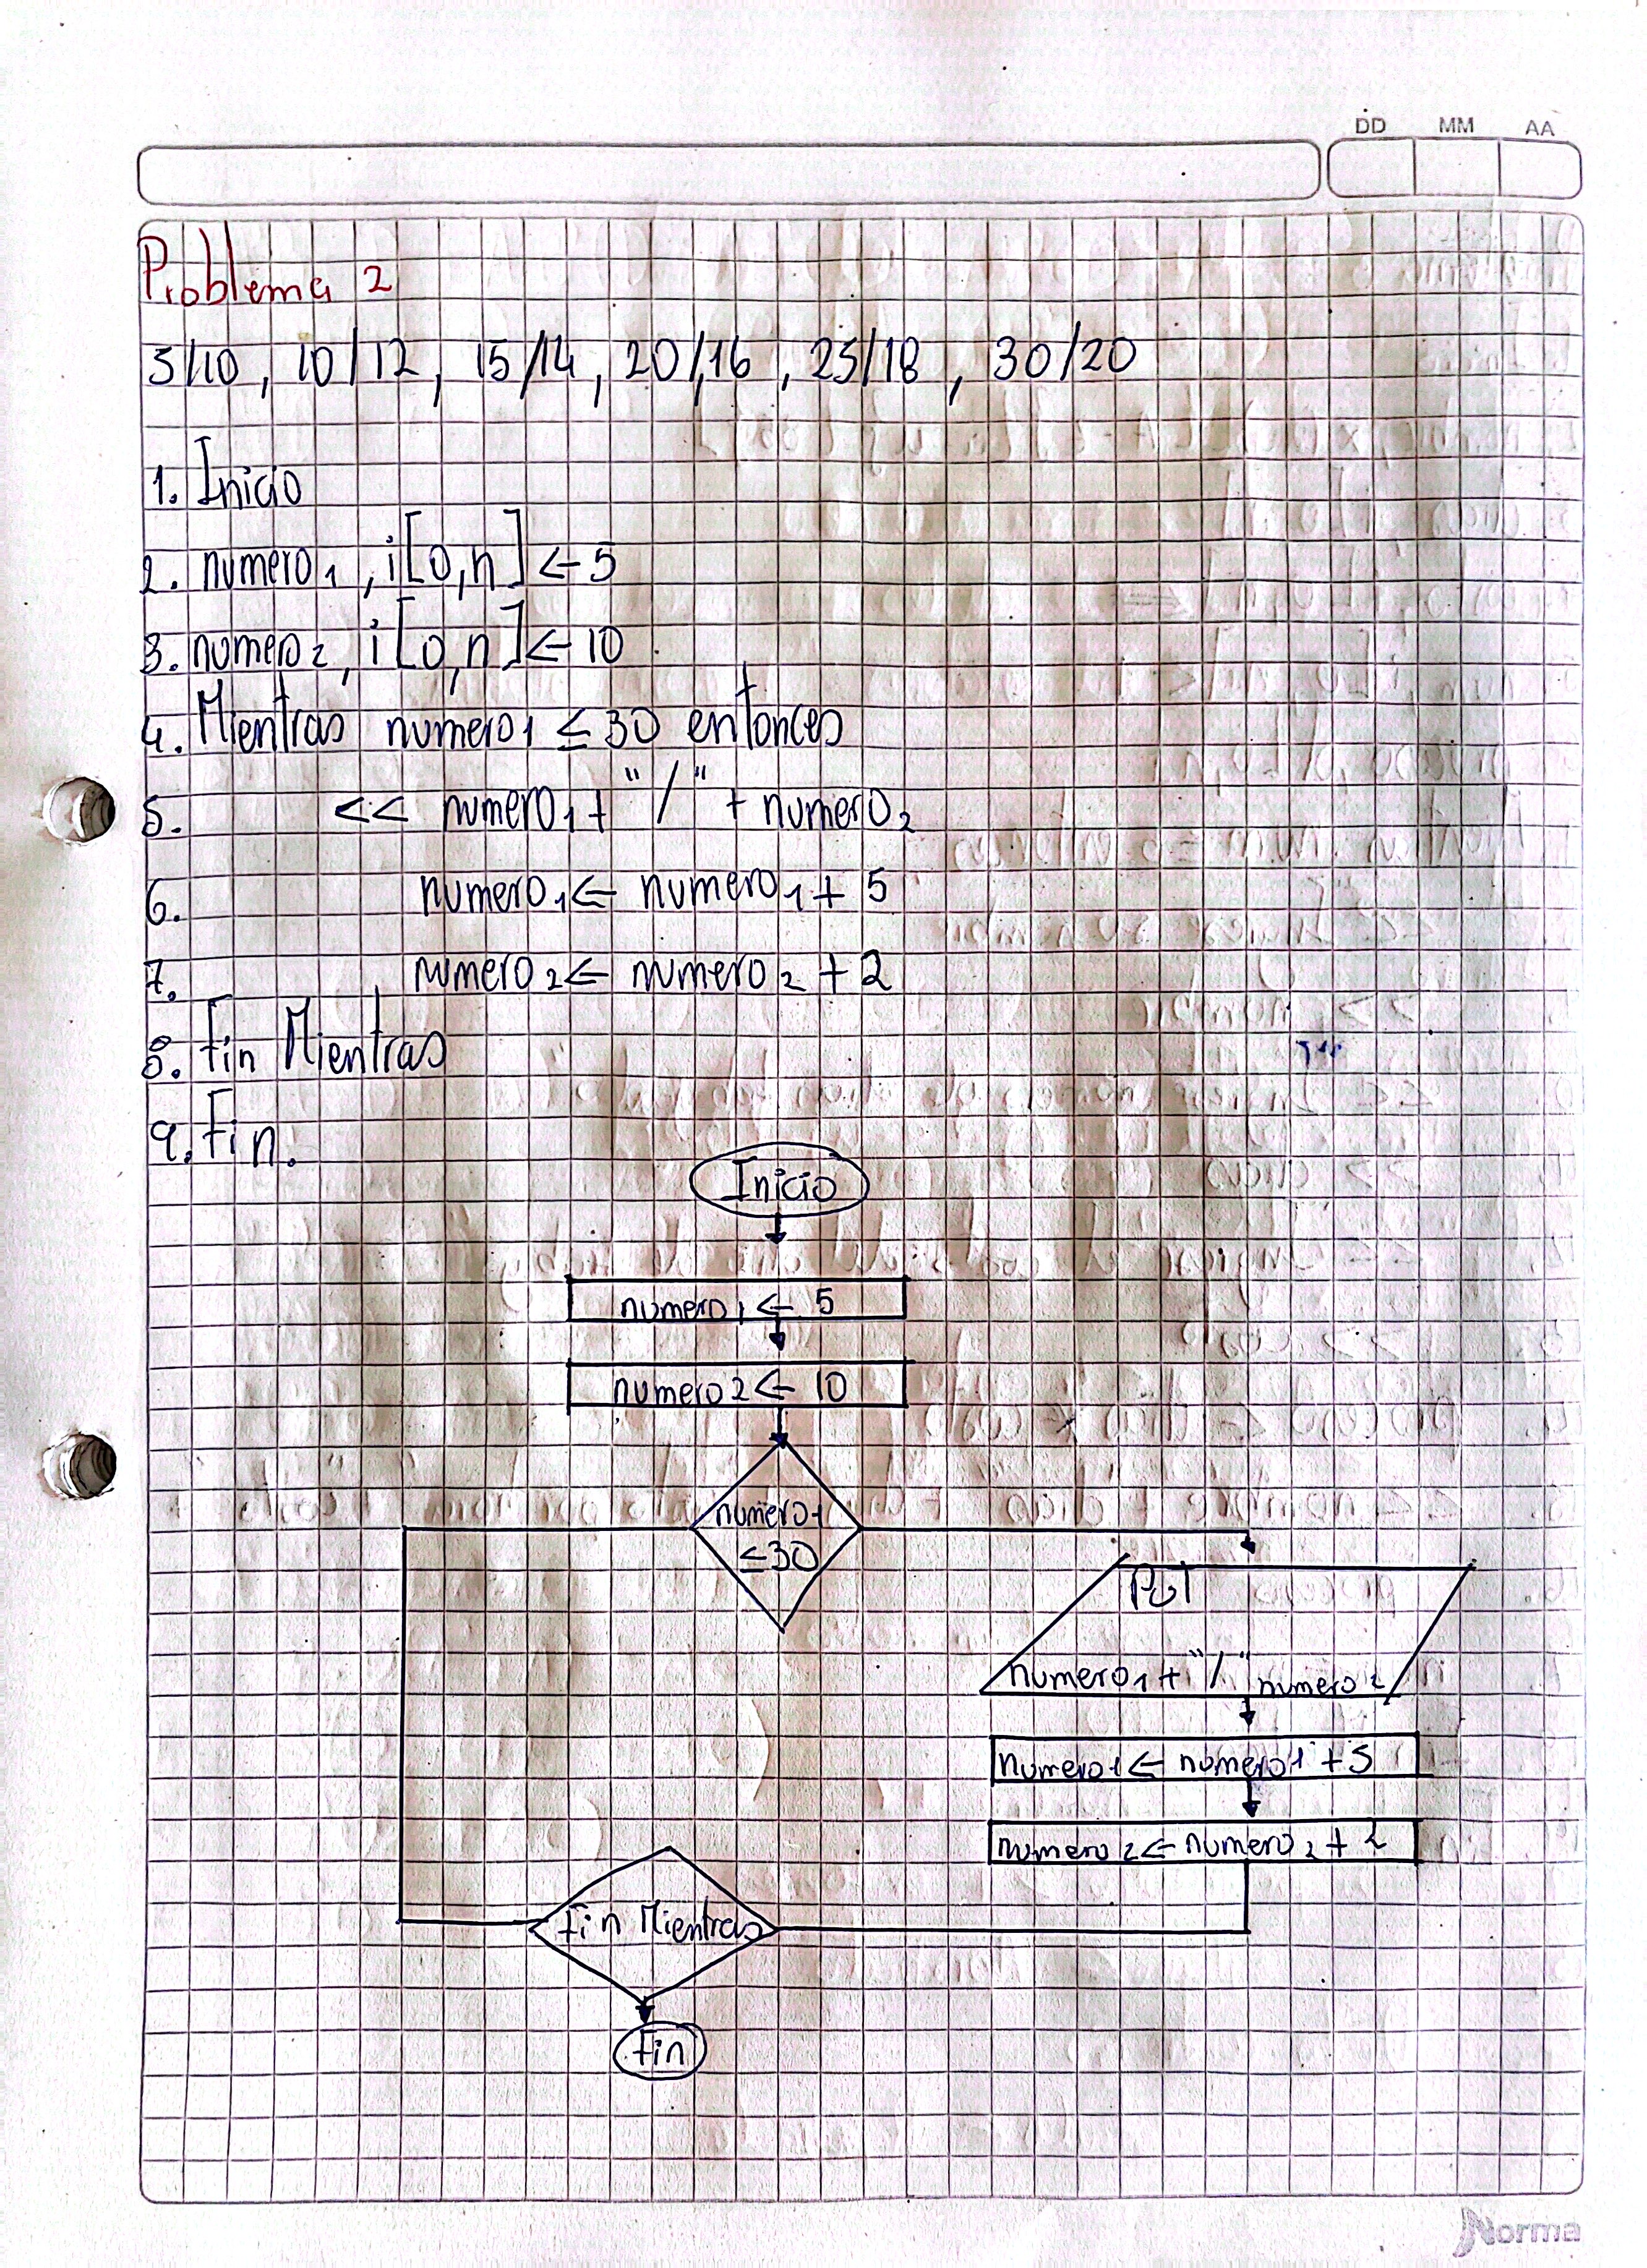 DD MM AA
Problema 2
5/10, 10/12, 15/14, 20/16, 25/18, 30/20
1. Inicio
2. numero1, i[0,n] ← 5
3. numero2, i[0,n] ← 10
4. Mientras numero1 ≤ 30 entonces
5. << numero1 + "/" + numero2
6. numero1 ← numero1 + 5
7. numero2 ← numero2 + 2
8. Fin Mientras
9. Fin.
Inicio
numero1 ← 5
numero2 ← 10
numero1
≤30
numero1 + "/" numero2
numero1 ← numero1 + 5
numero2 ← numero2 + 2
Fin Mientras
Fin
Norma